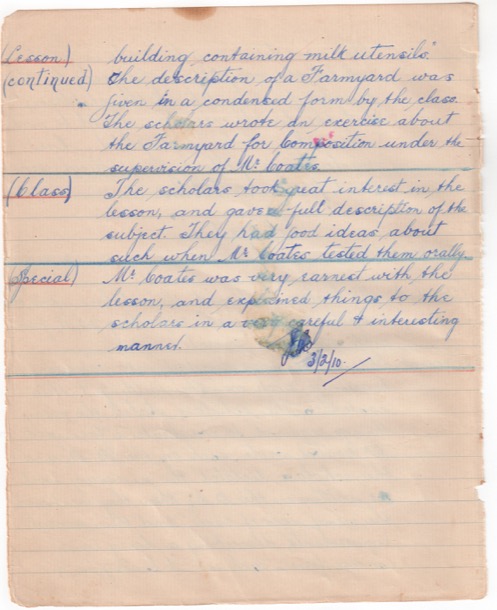 (Lesson) building containing milk utensils."
(continued) The description of a Farmyard was
given in a condensed form by the class.
The scholars wrote an exercise about
the Farmyard for Composition under the
supervision of Mr Coates.
(Class) The scholars took great interest in the
lesson, and gave full description of the
subject. They had good ideas about
such when Mr Coates tested them orally.
(Special) Mr Coates was very earnest with the
lesson, and explained things to the
scholars in a very careful & interesting
manner.
3/2/10.